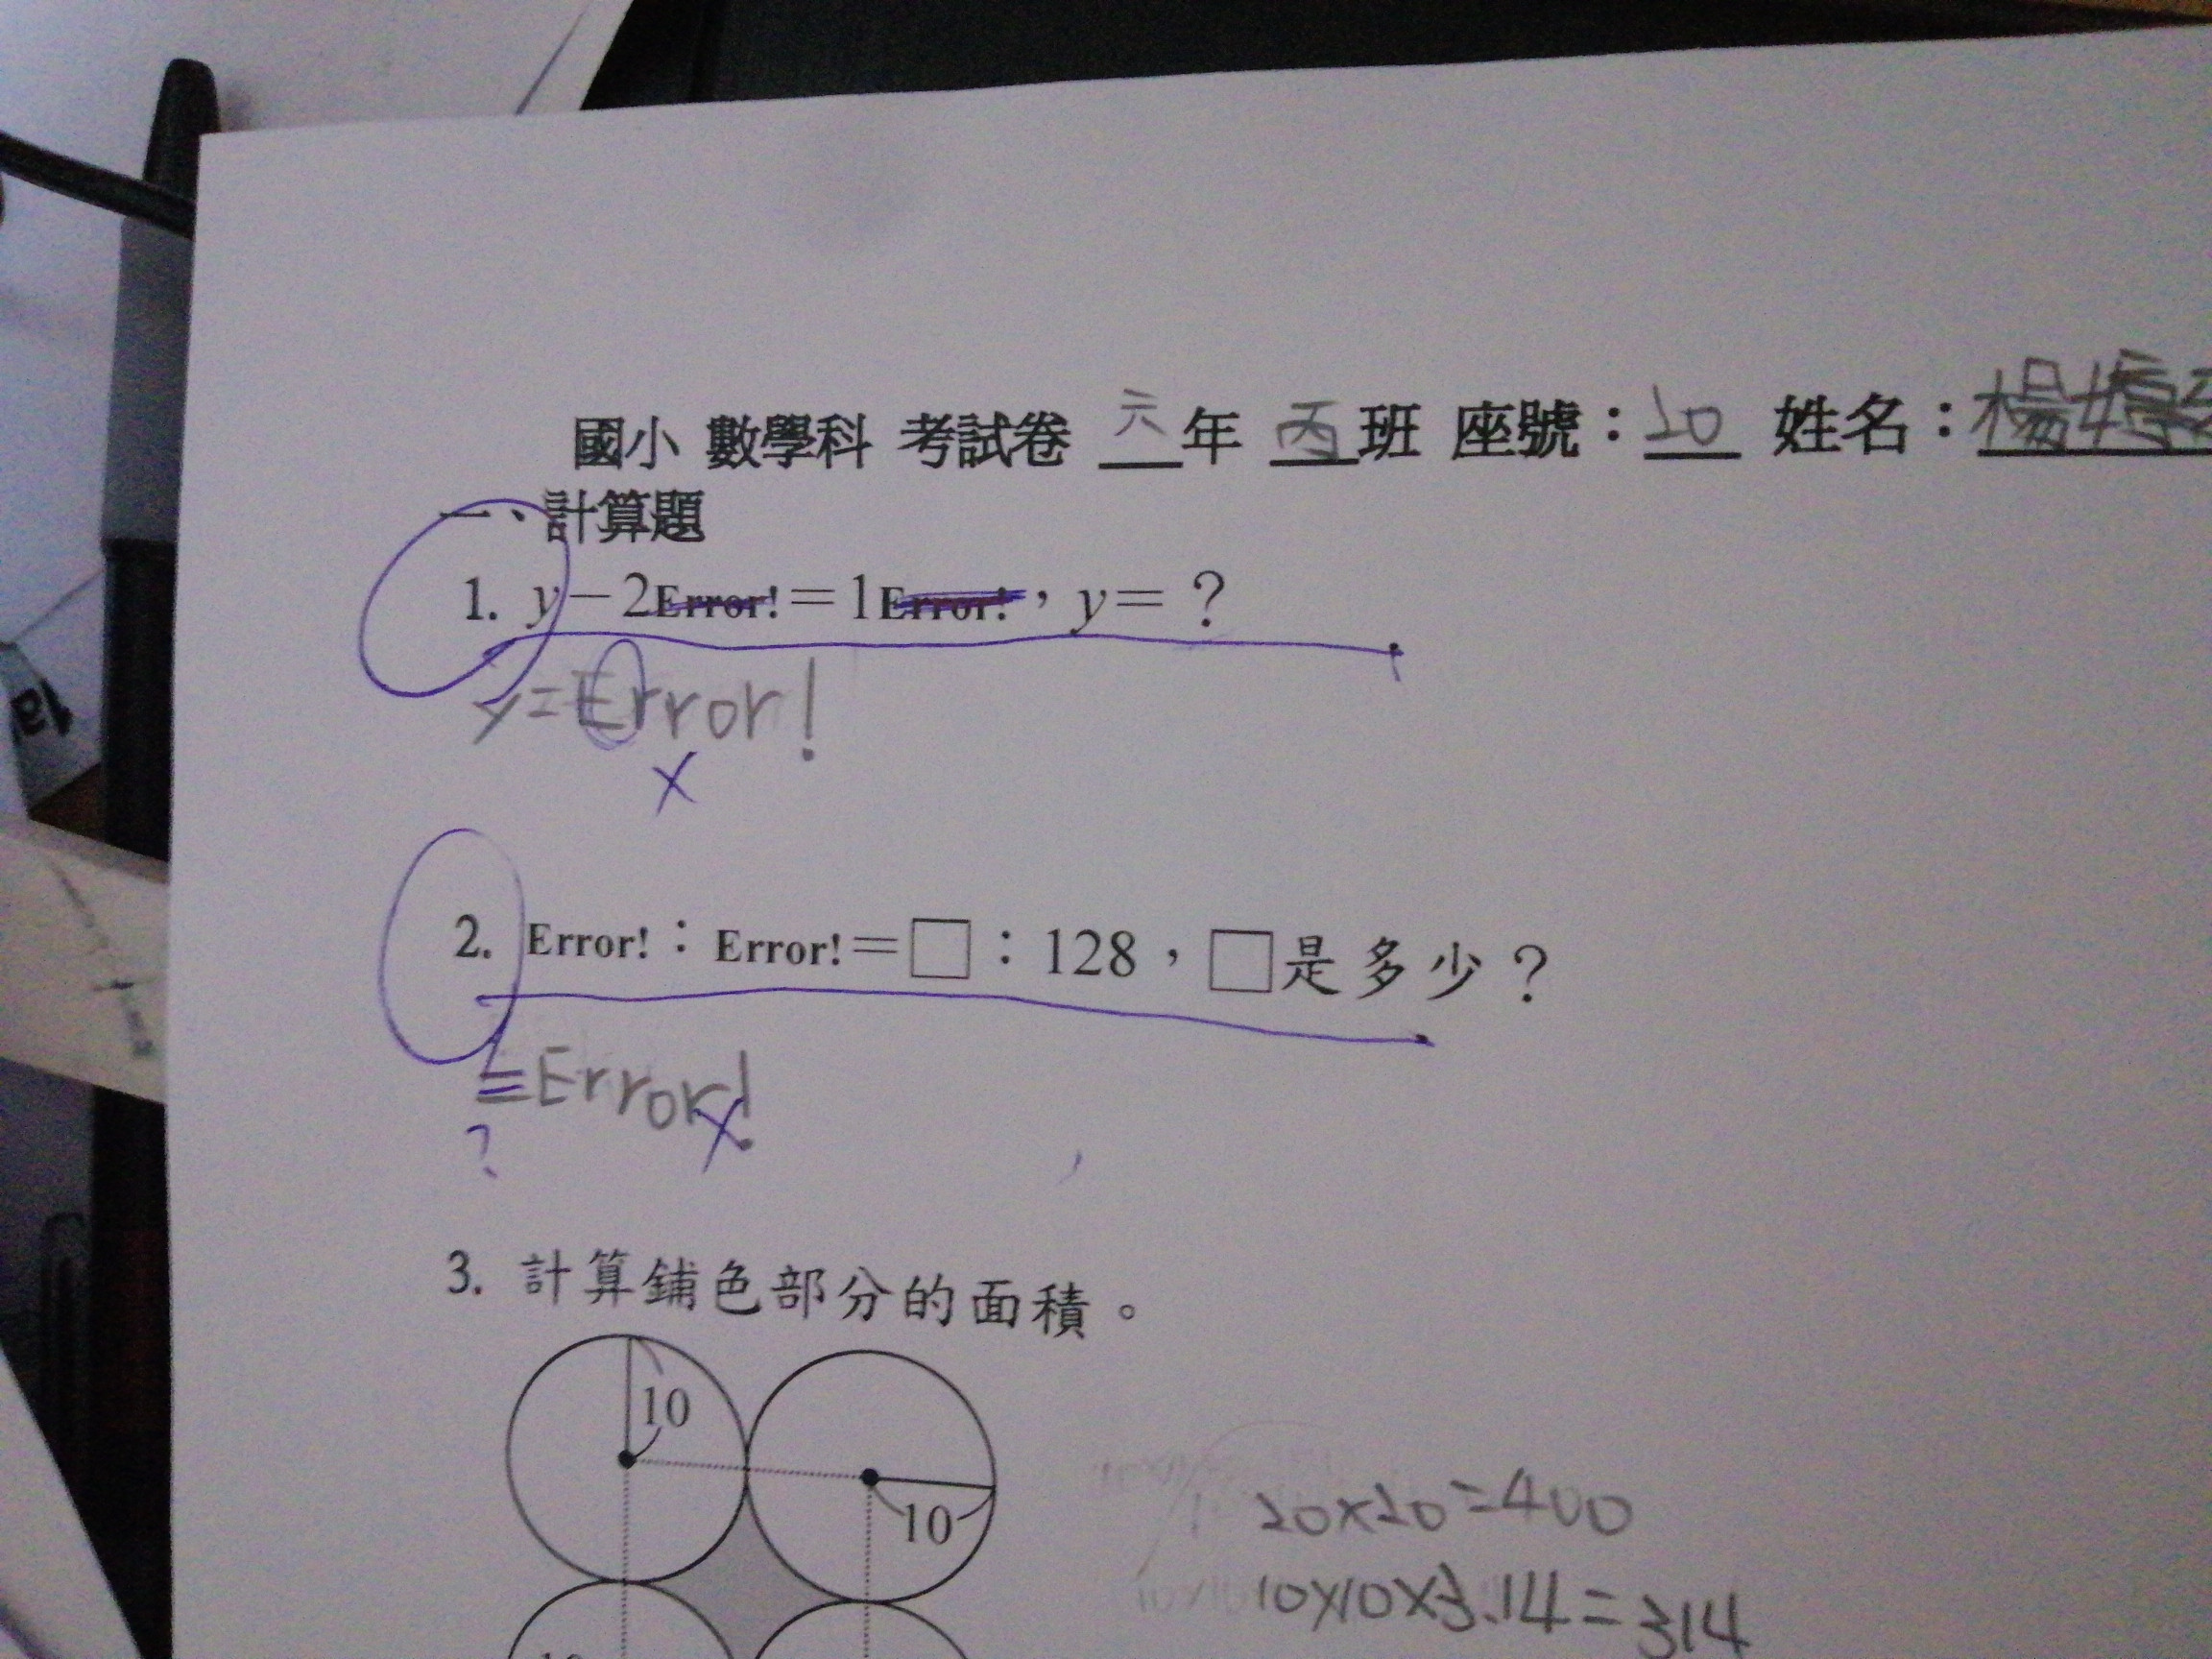 國小 數學科 考試卷 六年 丙班 座號：20 姓名：楊
一、計算題
1. y－2Error!＝1Error!，y＝？
y=Error!
x
2. Error!：Error!＝□：128，□是多少？
=Error!
x
?
3. 計算鋪色部分的面積。
10
10
20x20=400
10x10x3.14=314